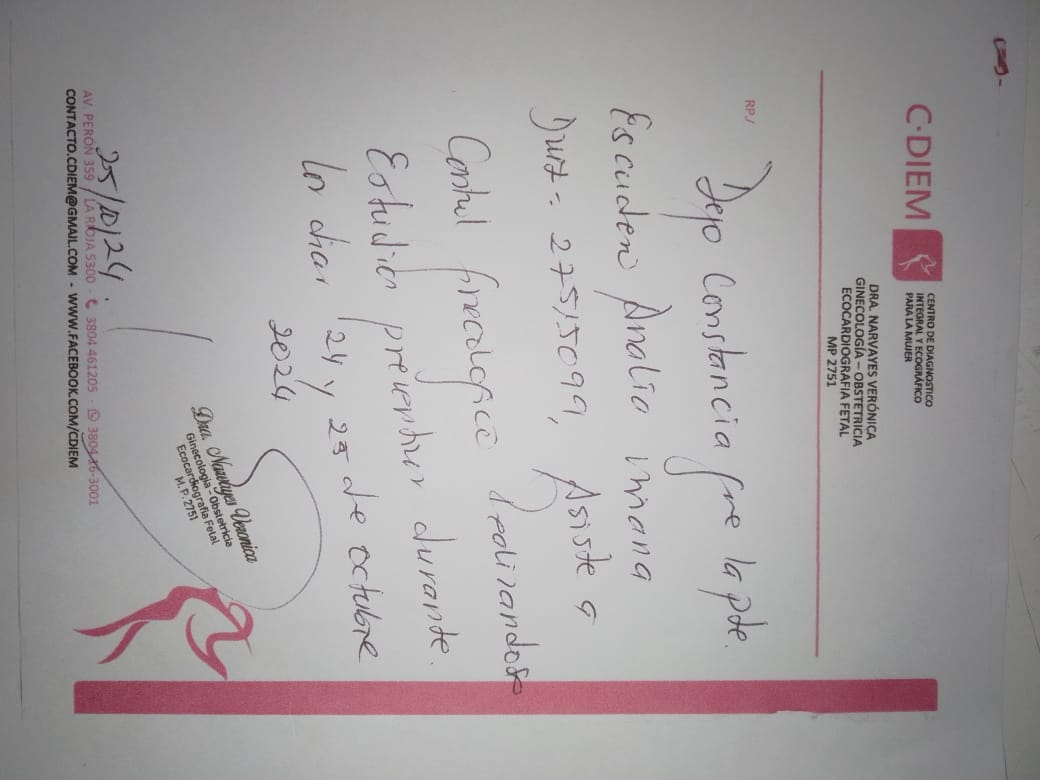 C·DIEM
CENTRO DE DIAGNOSTICO
INTEGRAL Y ECOGRÁFICO
PARA LA MUJER
DRA. NARVAYES VERÓNICA
GINECOLOGÍA – OBSTETRICIA
ECOCARDIOGRAFIA FETAL
MP 2751
RP./
Dejo Constancia que la pte.
Escudero Analía Viviana
27515099, Asiste a
Control Ginecologico Realizandose
Estudios preventivos durante
los dias 24 y 25 de octubre
2024
25/10/24.
Dra. Narvayes Veronica
Ginecología - Obstetricia
Ecocardiografia Fetal
M.P. 2751
AV. PERÓN 359 - LA RIOJA 5300 - 3804 461205 - 3804 16-3001
CONTACTO.CDIEM@GMAIL.COM - WWW.FACEBOOK.COM/CDIEM